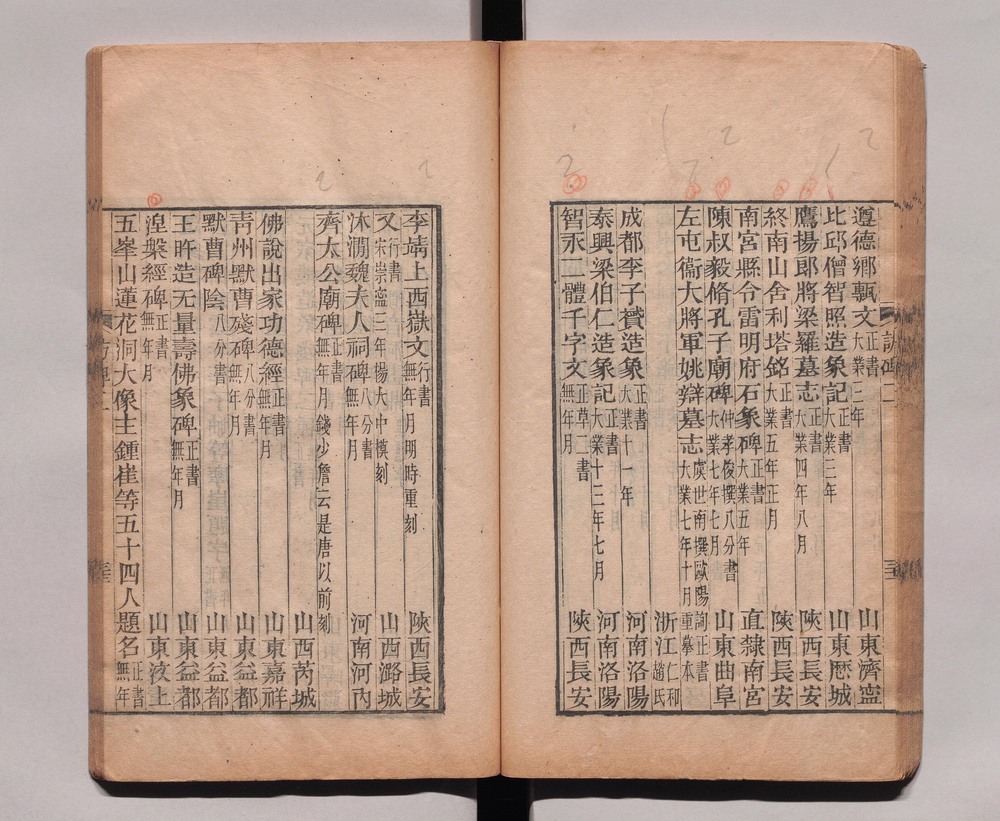 遵德鄉瓢文正書大業三年 山東濟寍
比邱僧智照造象記正書大業三年 山東歷城
鷹揚郎將梁羅墓志正書大業四年八月 陝西長安
終南山舍利塔銘正書大業五年正月 陝西長安
南宮縣令雷明府石象碑正書大業五年 直隸南宮
陳叔毅脩孔子廟碑仲孝俊撰八分書大業七年七月 山東曲阜
左屯衞大將軍姚辯墓志虞世南撰歐陽詢正書大業七年十月重摹本 浙江仁和趙氏
成都李子贇造象正書大業十一年 河南洛陽
泰興梁伯仁造象記正書大業十三年七月 河南洛陽
智永二體千字文正草二書無年月 陝西長安
李靖上西嶽文行書無年月明時重刻 陝西長安
又行書宋崇寍三年楊大中模刻 山西潞城
沐澗魏夫人祠碑八分書無年月 河南河內
齊太公廟碑正書無年月錢少詹云是唐以前刻
山西芮城
佛說出家功德經正書無年月 山東嘉祥
青州默曹殘碑八分書無年月 山東益都
默曹碑陰八分書 山東益都
王昨造无量壽佛象碑正書無年月 山東益都
湼槃經碑正書無年月 山東汶上
五峯山蓮花洞大像主鍾崔等五十四人題名正書無年